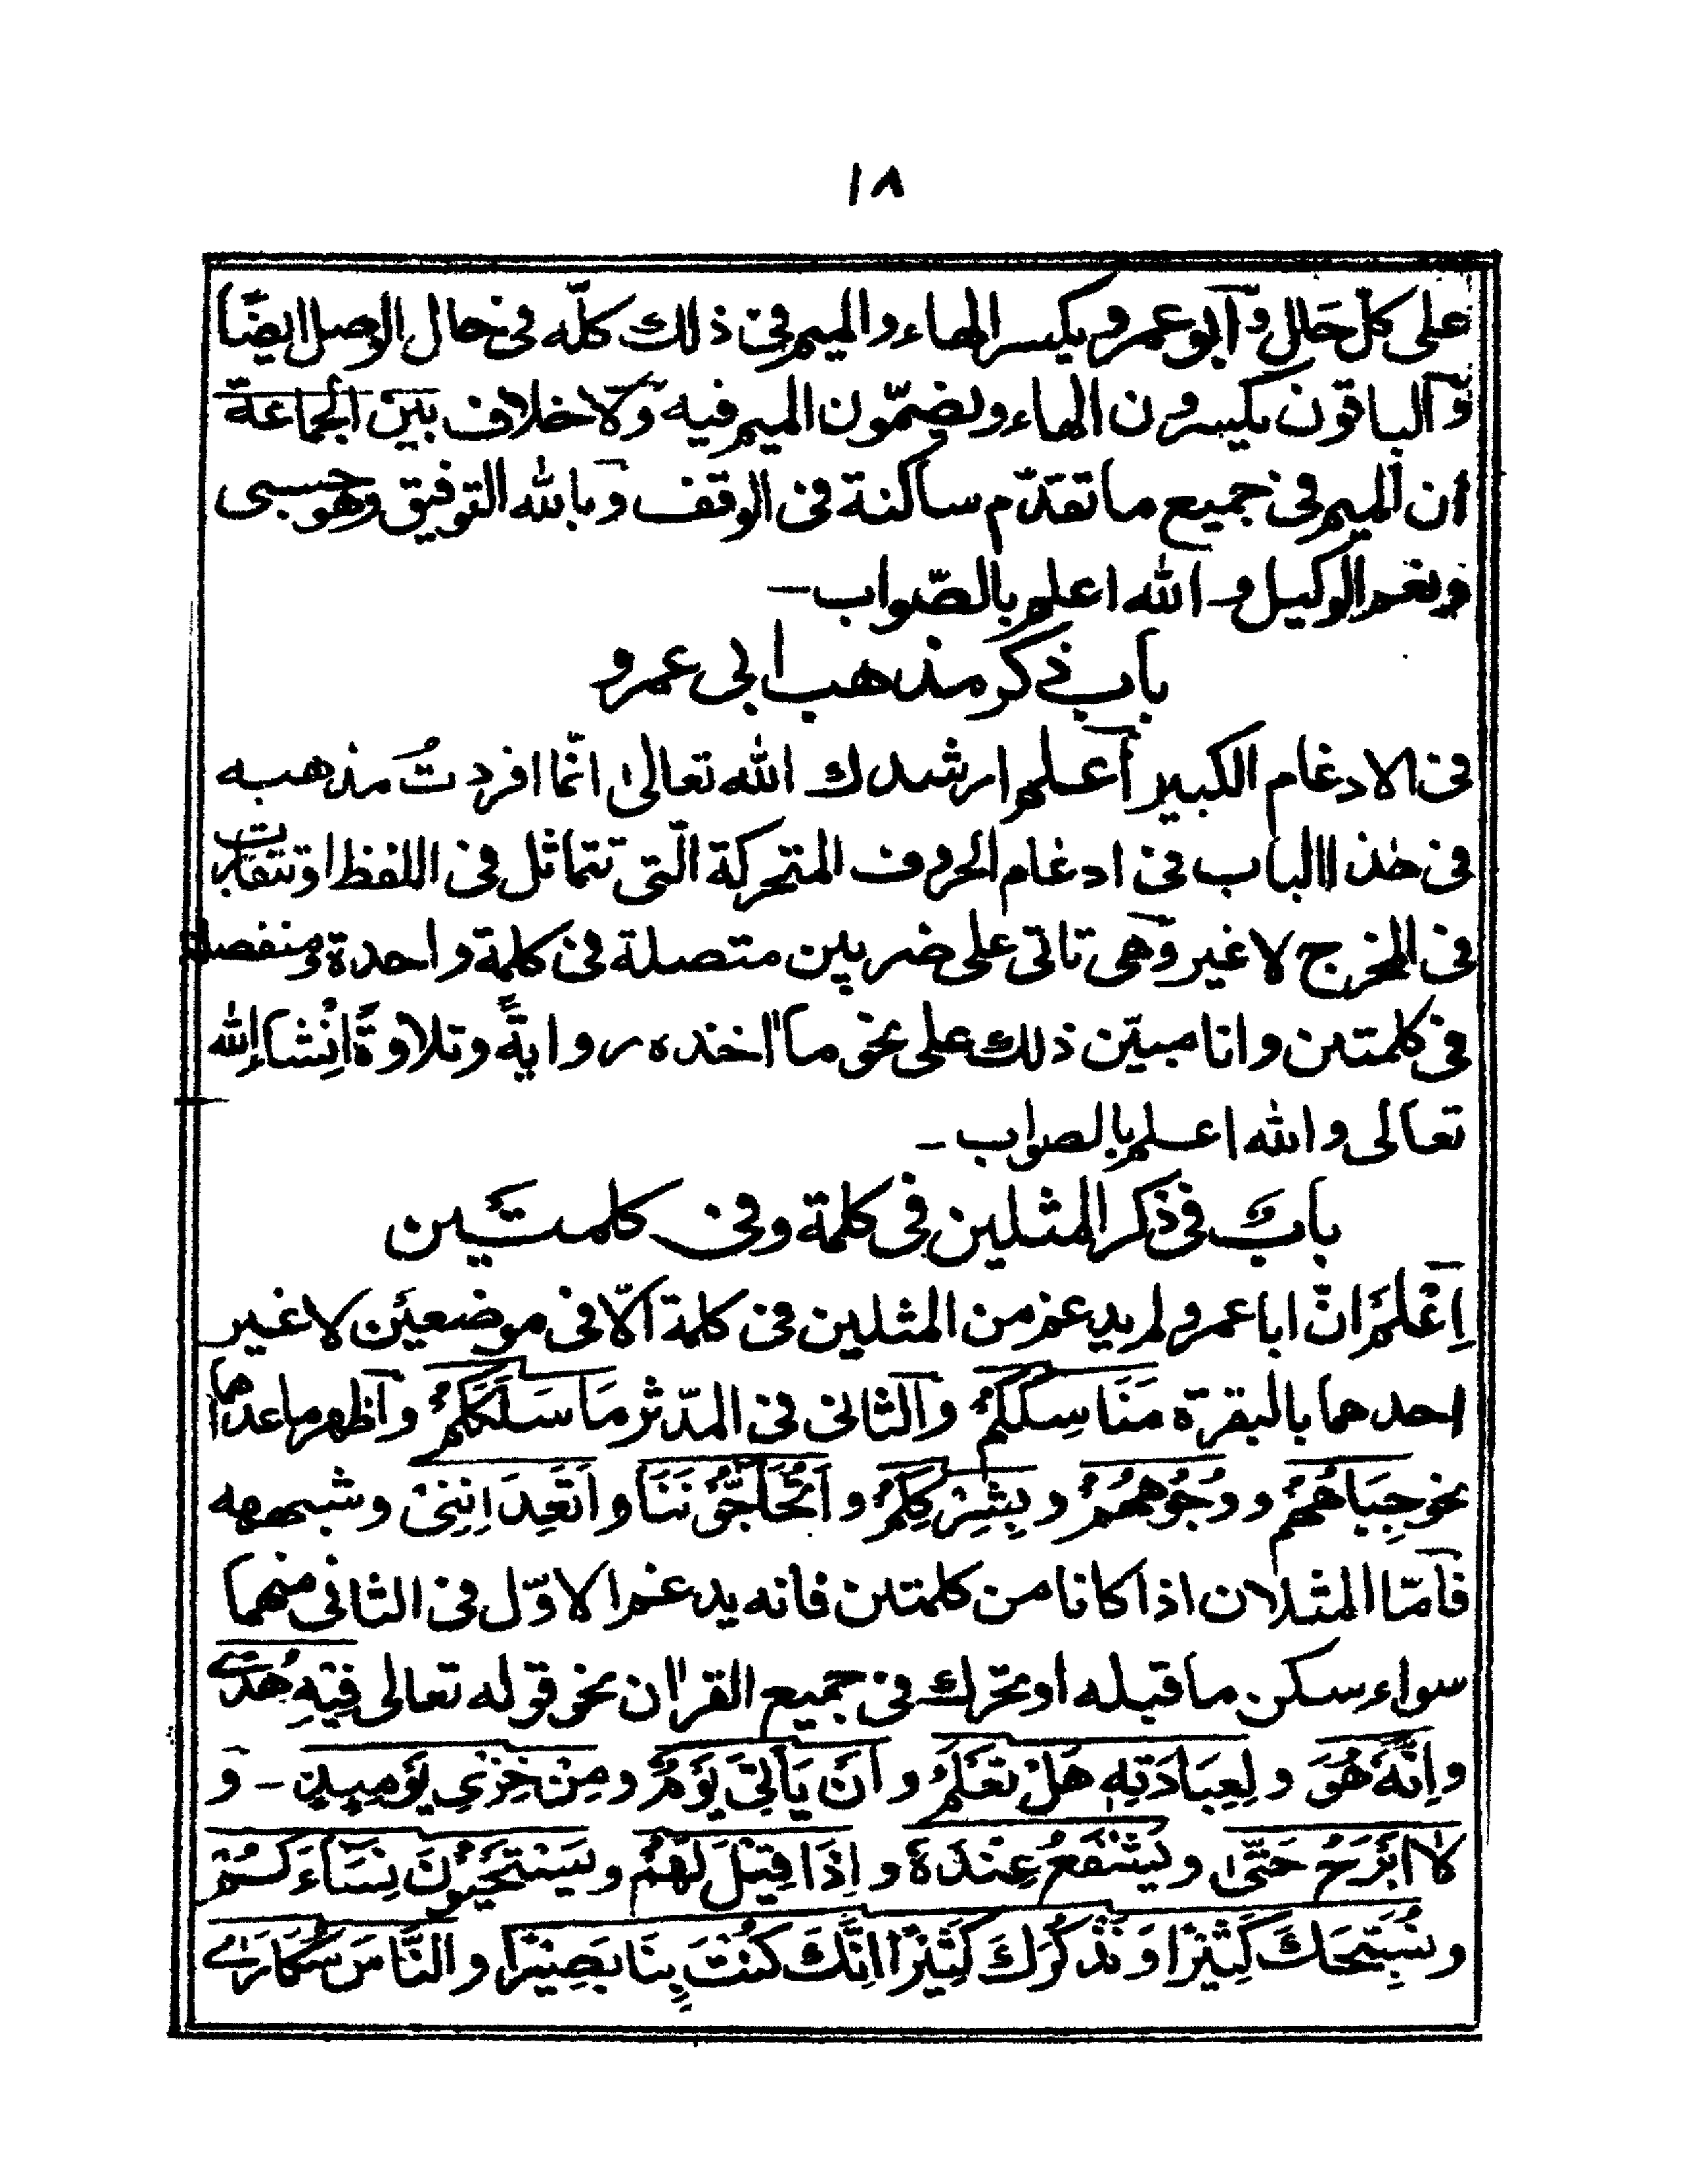 ١٨
على كلّ حَالٍ وَّابو عمرو يكسر الهاء والميم فى ذلك كلّه فى حال الوصل ايضًا
وَّالباقون يكسرون الهاء ويضمّون الميم فيه وّلا خلاف بين الجماعة
ان الميم فى جميع ما تقدّم ساكنة فى الوقف وبالله التوفيق وهو حسبى
ونعم الوكيل و الله اعلم بالصّواب —
باب ذكر مذهب ابى عمرو
فى الادغام الكبير اعلم ارشدك الله تعالىٰ انّما افردتُ مذهبه
فى هٰذا الباب فى ادغام الحروف المتحركة الّتى تتماثل فى اللفظ او تتقارب
فى المخرج لا غير وّهى تاتى على ضربين متصلة فى كلمة واحدة ومنفصلة
فى كلمتين وانا مبيّن ذلك على نحو ما اخذه روايةً وتلاوةً اِنْشاء الله
تعالى والله اعلم بالصواب -
بابٌ فى ذكر المثلين فى كلمة وفى كلمتَين
اِعْلَمْ انّ ابا عمرو لم يدغم من المثلين فى كلمة الّا فى موضعَين لا غير
احدهما بالبقرة مَنَاسِكَكُمْ والثانى فى المدّثر مَا سَلَكَكُمْ واظهر ما عداهما
نحو جِبَاهُهُمْ و وُجُوْهُهُمْ و بِشِرْكِكُمْ و اَتُحَاجُّوْنَنَا و اَتَعِدَانِنِىْ وشبهه
فامّا المثلان اذا كانا من كلمتين فانه يدغم الاوّل فى الثانى منهما
سواء سكن ما قبله او تحرّك فى جميع القراٰن نحو قوله تعالى فِيْهِ هُدًى
و اِنَّهٗ هُوَ و لِعِبَادَتِهٖ هَلْ تَعْلَمُ و اَنْ يَّاْتِىَ يَوْمٌ و مِنْ خِزْىِ يَوْمِىِٕذٍ - و
لَا اَبْرَحُ حَتّٰى و يَشْفَعُ عِنْدَهٗ و اِذَا قِيْلَ لَهُمْ و يَسْتَحْيُوْنَ نِسَآءَكُمْ
و نُسَبِّحَكَ كَثِيْرًا وَّ نَذْكُرَكَ كَثِيْرًا اِنَّكَ كُنْتَ بِنَا بَصِيْرًا و النَّاسَ سُكَارٰى